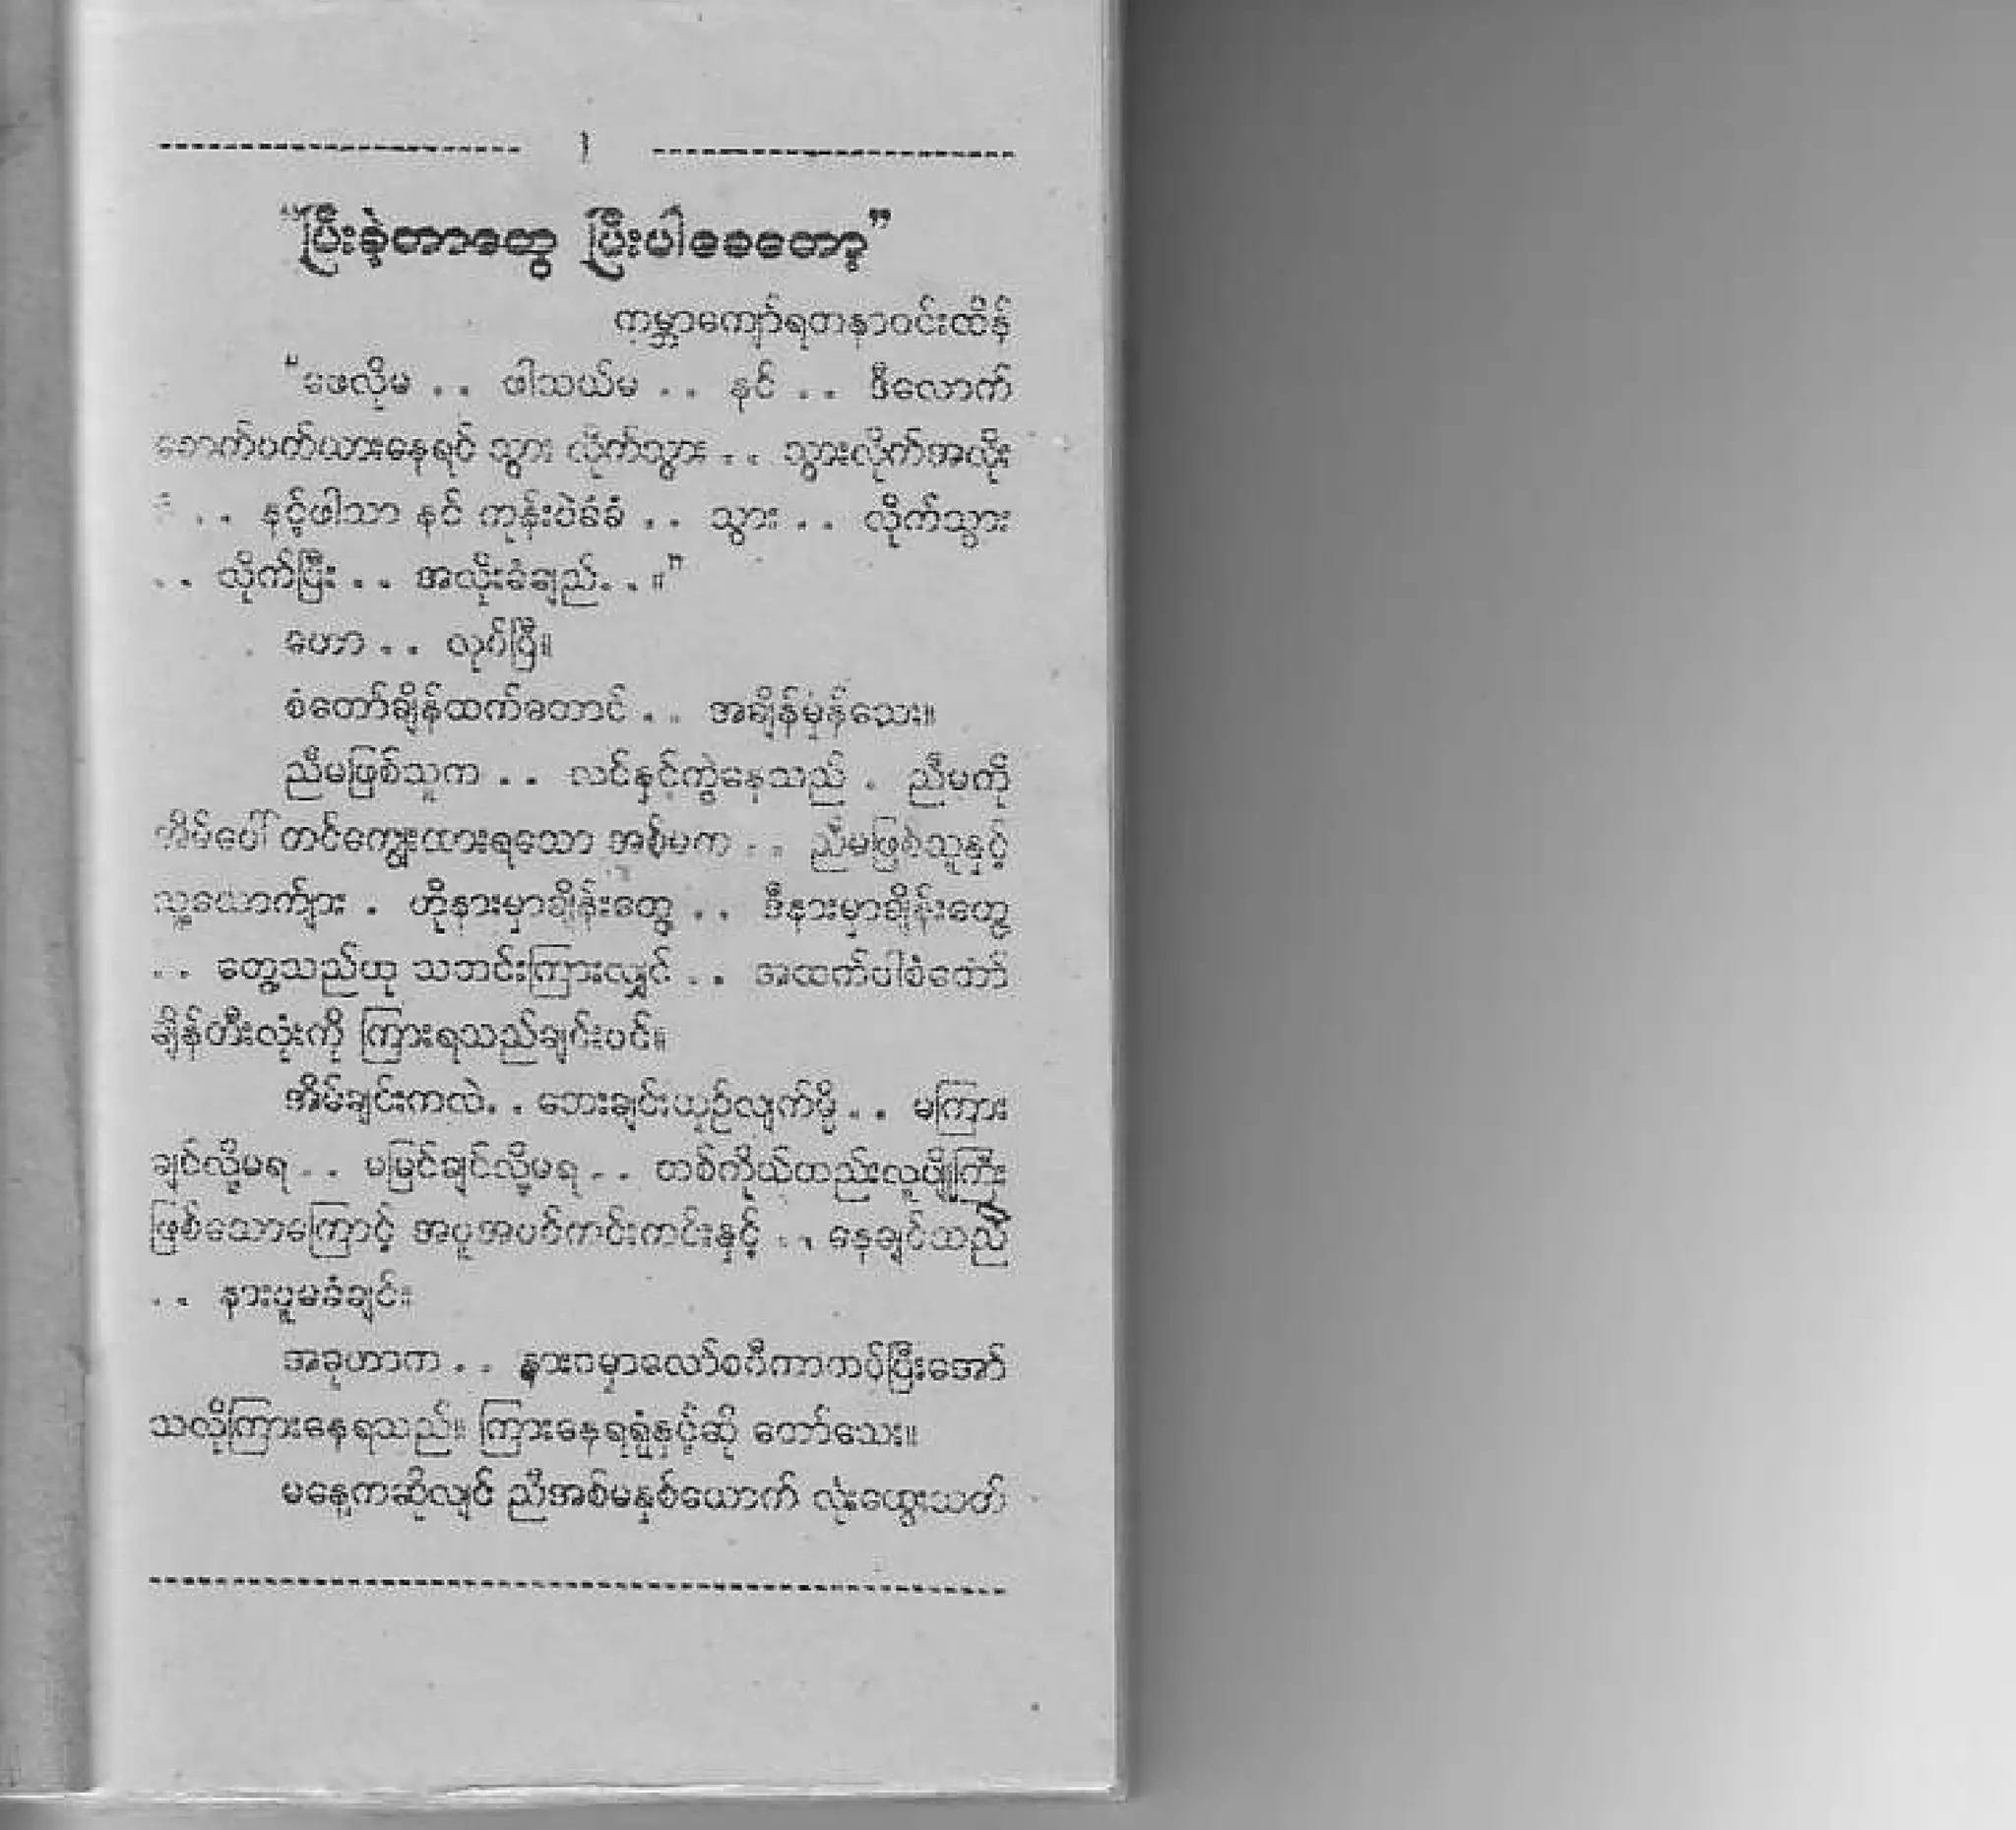 1
“ပြီးခဲ့တာတွေ ပြီးပါစေတော့”
ကမ္ဘာကျော်ရတနာဝင်းထိန်
“ဖေလိုမ . . ဖါသယ်မ . . နင် . . ဒီလောက်
စောက်ပတ်ယားနေရင် သွား လိုက်သွား . . သွားလိုက်အလိုး
ခံ . . နင့်ဖါသာ နင် ကုန်းပဲခံခံ . . သွား . . လိုက်သွား
. . လိုက်ပြီး . . အလိုးခံချည် . . ။”
ဟော . . လုပ်ပြီ။
စံတော်ချိန်ထက်တောင် . . အချိန်မှန်သေး။
ညီမဖြစ်သူက . . လင်နှင့်ကွဲနေသည် . ညီမကို
အိမ်ပေါ်တင်ကျွေးထားရသော အစ်မက . . ညီမဖြစ်သူနှင့်
သူ့ယောက်ျား . ဟိုနားမှာချိန်းတွေ့ . . ဒီနားမှာချိန်းတွေ့
. . တွေ့သည်ဟု သတင်းကြားလျှင် . . အထက်ပါစံတော်
ချိန်တီးလုံးကို ကြားရသည်ချင်းပင်။
အိမ်ချင်းကလဲ. . ဘေးချင်းယှဉ်လျက်မို့ . . မကြား
ချင်လို့မရ . . မမြင်ချင်လို့မရ . . တစ်ကိုယ်တည်းလူပျိုကြီး
ဖြစ်သောကြောင့် အပူအပင်ကင်းကင်းနှင့် . . နေချင်သည်
. . နားပူမခံချင်။
အခုဟာက . . နားဝမှာလော်စပီကာကပ်ပြီးအော်
သလိုကြားနေရသည်။ ကြားနေရရုံနှင့်ဆို တော်သေး။
မနေ့ကဆိုလျင် ညီအစ်မနှစ်ယောက် လုံးထွေးသတ်